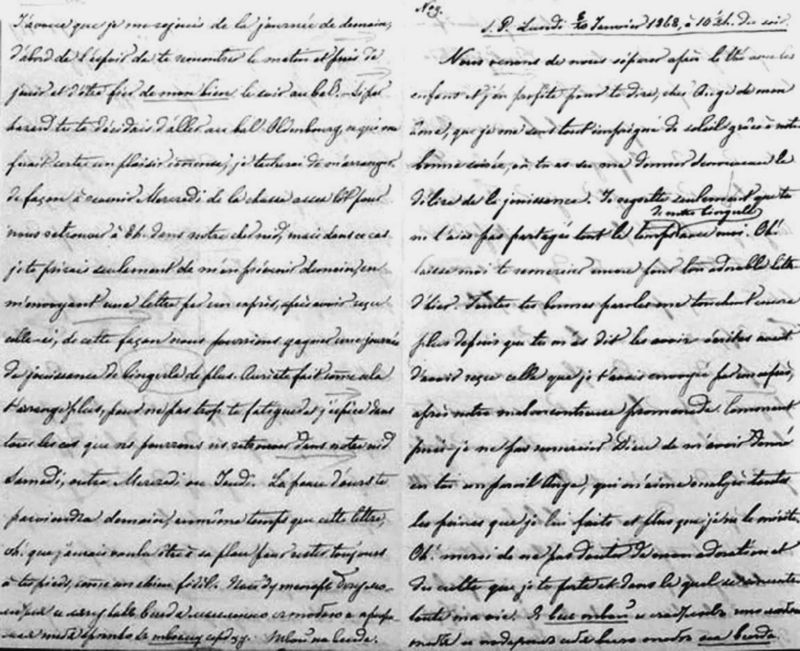 No 9.
S. P. Lundi 8/20 Janvier 1868, à 10 ½ h. du soir.
Nous venons de nous séparer après le thé avec les
enfants et j'en profite pour te dire, cher Ange de mon
âme, que je me sens tout imprégné de soleil grâce à notre
bonne soirée, où tu as su me donner de nouveau le
délire de la jouissance. Je regrette seulement que tu
de notre bingerle
n'l'aies pas partagé tout le temps avec moi. Oh!
laisse moi te remercier encore pour ton adorable lettre
d'hier. Toutes tes bonnes paroles me touchent encore
plus depuis que tu m'as dit les avoir écrites avant
d'avoir reçu celle que je t'avais envoyée par un exprès,
après notre malencontreuse promenade. Comment
puis je ne pas remercier Dieu de m'avoir donné
en toi un pareil Ange, qui m'aime malgré toutes
les peines que je lui fais et plus que je ne le mérite.
Oh! merci de ne pas douter de mon adoration et
du culte que je te porte et dans lequel se concentre
toute ma vie. Я весь твой и счастливъ
на всегда
J'avoue que je me rejouis de la journée de demain,
d'abord de l'espoir de te rencontrer le matin et puis de
jouir et d'être fier de mon bien le soir au bal. Si par
hasard tu te décidais d'aller au bal Oldenbourg, ce qui me
ferait certes un plaisir immense, je tacherai de m'arranger
de façon à revenir Mercredi de la chasse assez tôt pour
nous retrouver à 8 h. dans notre cher nid, mais dans ce cas
je te prierais seulement de m'en prévenir demain, en
m'envoyant une lettre par un exprès, après avoir reçu
celle-ci, de cette façon nous pourrions gagner une journée
de jouissance de bingerle de plus. Au reste fait comme cela
t'arrange plus, pour ne pas trop te fatiguer et j'espère dans
tous les cas que ns pourrons ns retrouver dans notre nid
Samedi, outre Mercredi ou Jeudi. La peau d'ours te
parviendra demain, en même temps que cette lettre,
oh. que j'aurais voulu être à sa place pour rester toujours
à tes pieds, comme un chien fidèle.
Твой на всегда.